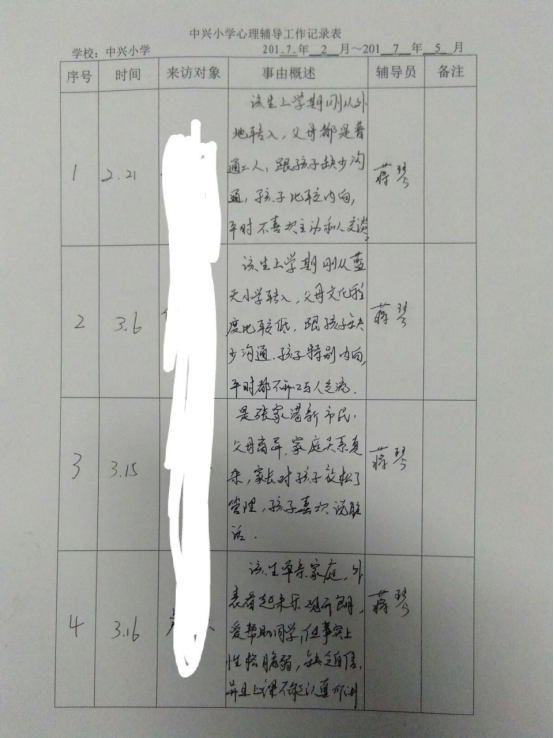 中兴小学心理辅导工作记录表
学校：中兴小学 2017年2月～2017年5月
序号 时间 来访对象 事由概述 辅导员 备注
1 2.21 蒋琴
该生上学期刚从外
地转入，父母都是普
通工人，跟孩子缺少沟
通，孩子比较内向，
平时不喜欢主动和人交谈。
2 3.6 蒋琴
该生上学期刚从蓝
天小学转入，父母文化程
度比较低，跟孩子缺
少沟通，孩子特别内向，
平时都不与人交流．
3 3.15 蒋琴
是张家港新市民．
父母离异，家庭关系复
杂，家长对孩子放松了
管理，孩子喜欢说脏
话．
4 3.16 蒋琴
该生单亲家庭，外
表看起来乐观开朗，
爱帮助同学，但事实上
性格脆弱，缺乏自信，
并且上课不能认真听讲